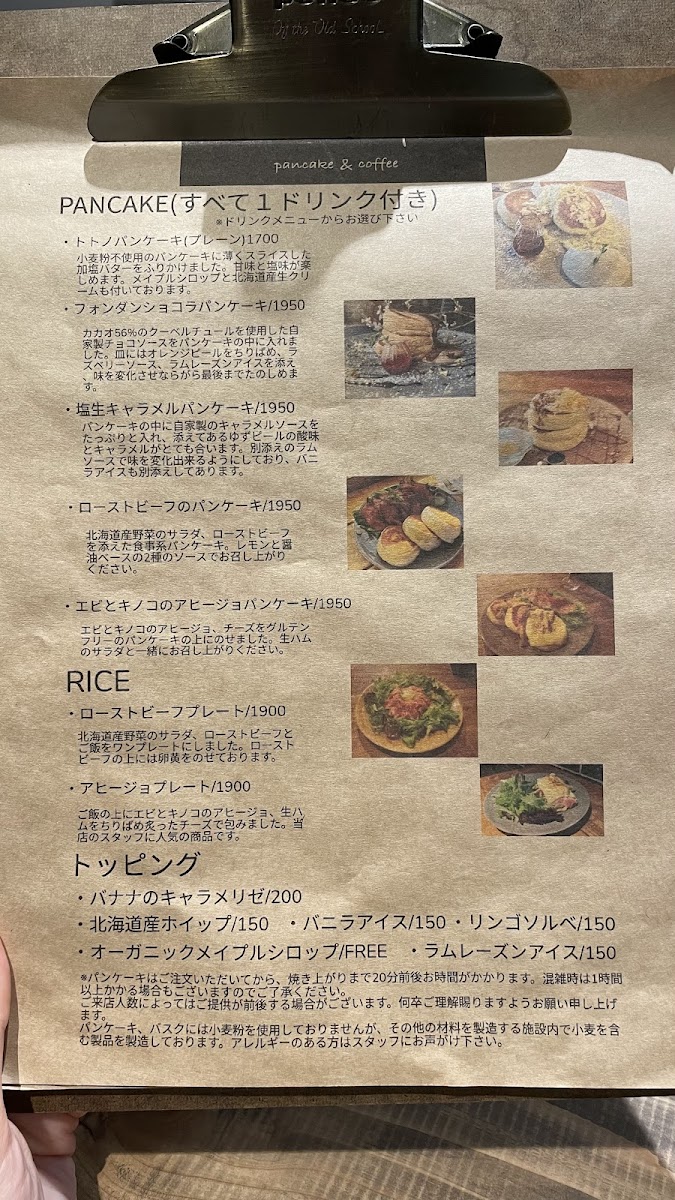 Of the Old School
pancake & coffee
PANCAKE(すべて１ドリンク付き)
※ドリンクメニューからお選び下さい
・トトノパンケーキ(プレーン)1700
小麦粉不使用のパンケーキに薄くスライスした
加塩バターをふりかけました。甘味と塩味が楽
しめます。メイプルシロップと北海道産生クリ
ームも付いております。
・フォンダンショコラパンケーキ/1950
カカオ56%のクーベルチュールを使用した自
家製チョコソースをパンケーキの中に入れま
した。皿にはオレンジピールをちりばめ、ラ
ズベリーソース、ラムレーズンアイスを添え
、味を変化させながら最後までたのしめま
す。
・塩生キャラメルパンケーキ/1950
パンケーキの中に自家製のキャラメルソースを
たっぷりと入れ、添えてあるゆずピールの酸味
とキャラメルがとても合います。別添えのラム
ソースで味を変化出来るようにしており、バニ
ラアイスも別添えしてあります。
・ローストビーフのパンケーキ/1950
北海道産野菜のサラダ、ローストビーフ
を添えた食事系パンケーキ。レモンと醤
油ベースの2種のソースでお召し上がり
ください。
・エビとキノコのアヒージョパンケーキ/1950
エビとキノコのアヒージョ、チーズをグルテン
フリーのパンケーキの上にのせました。生ハム
のサラダと一緒にお召し上がりください。
RICE
・ローストビーフプレート/1900
北海道産野菜のサラダ、ローストビーフと
ご飯をワンプレートにしました。ロースト
ビーフの上には卵黄をのせております。
・アヒージョプレート/1900
ご飯の上にエビとキノコのアヒージョ、生ハ
ムをちりばめ炙ったチーズで包みました。当
店のスタッフに人気の商品です。
トッピング
・バナナのキャラメリゼ/200
・北海道産ホイップ/150 ・バニラアイス/150 ・リンゴソルベ/150
・オーガニックメイプルシロップ/FREE ・ラムレーズンアイス/150
※パンケーキはご注文いただいてから、焼き上がりまで20分前後お時間がかかります。混雑時は1時間
以上かかる場合もございますのでご了承ください。
ご来店人数によってはご提供が前後する場合がございます。何卒ご理解賜りますようお願い申し上げ
ます。
パンケーキ、バスクには小麦粉を使用しておりませんが、その他の材料を製造する施設内で小麦を含
む製品を製造しております。アレルギーのある方はスタッフにお声がけ下さい。